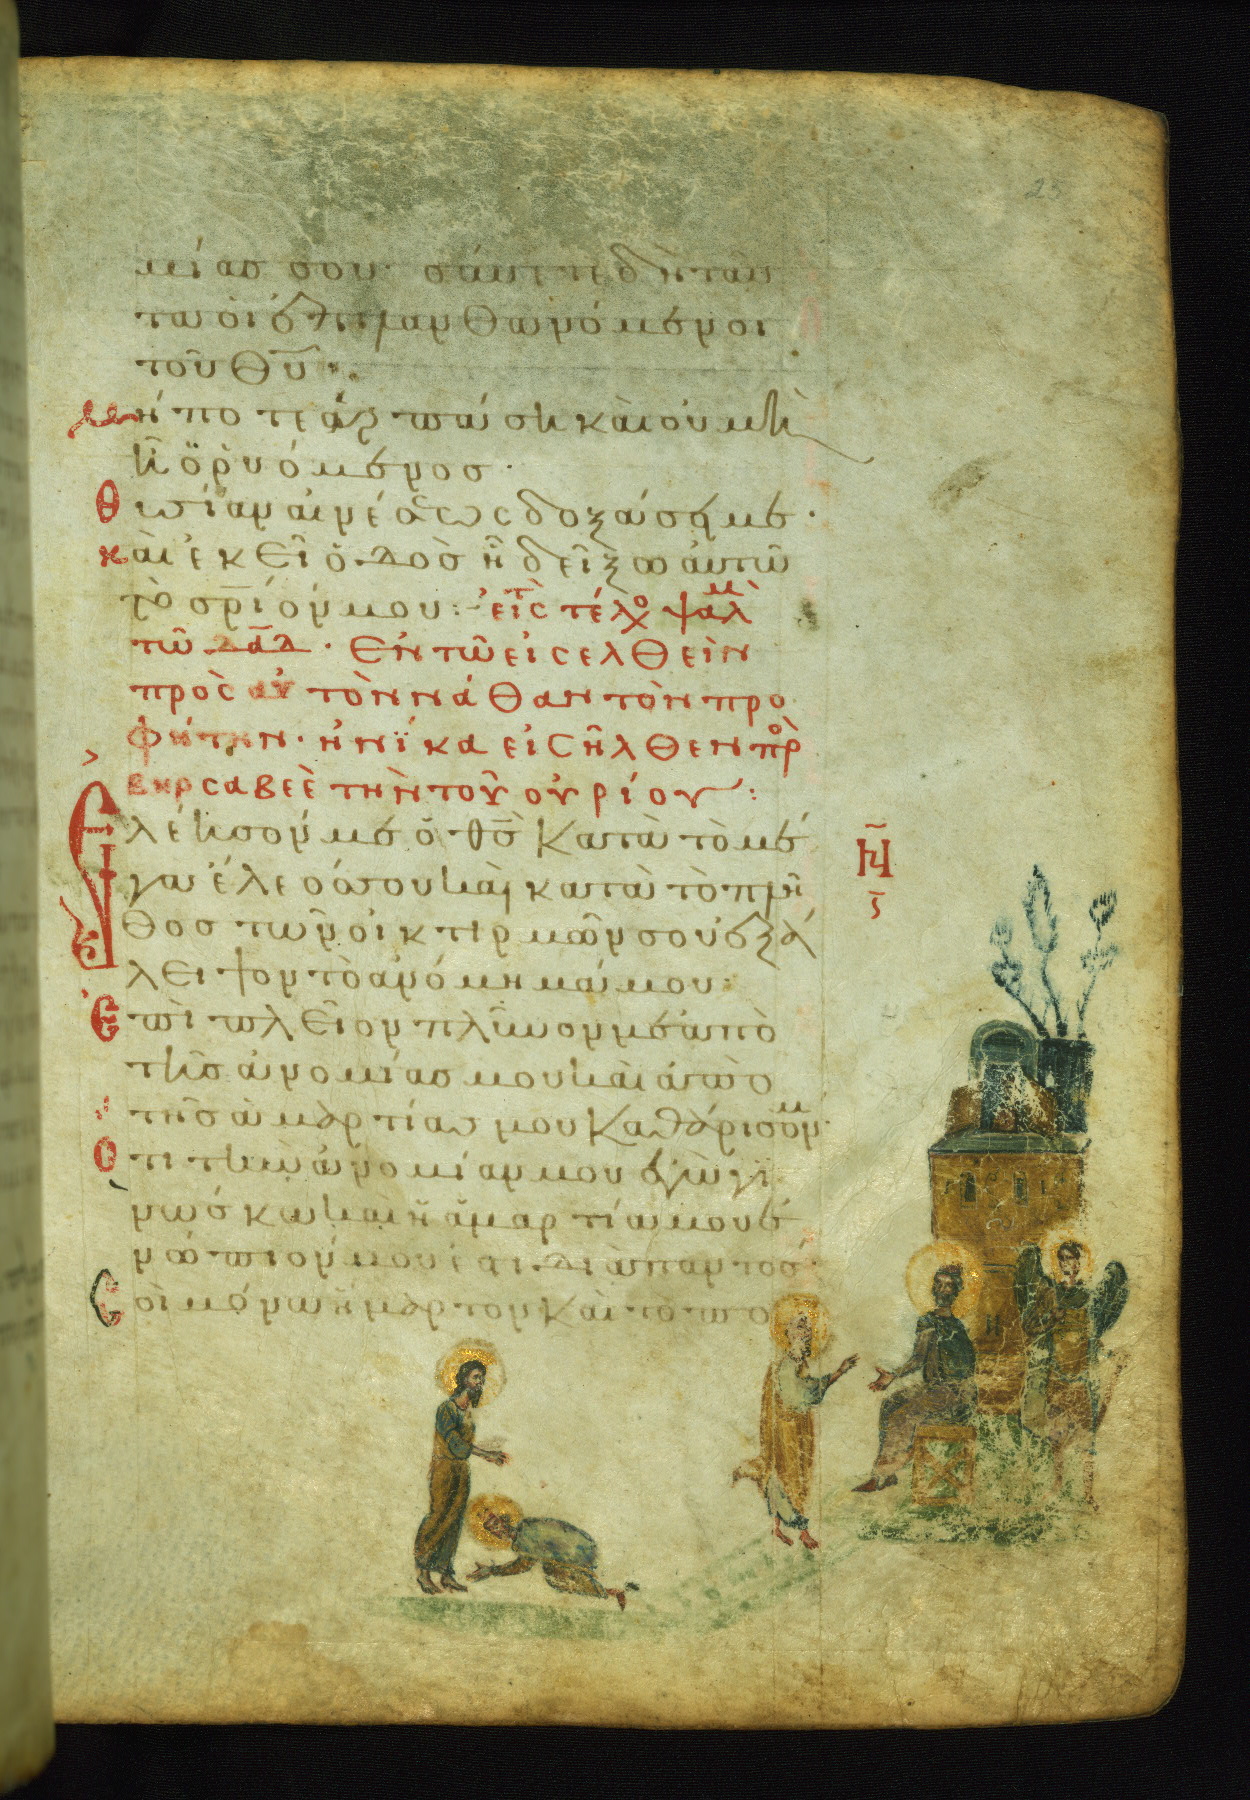 25
μίας σου· σύνετε δὴ ταῦ
τα οἱ ἐπιλανθανόμενοι
τοῦ θ̅υ̅:
μήποτε ἁρπάσῃ καὶ οὐ μὴ
ἦ ὁ ῥυόμενος·
θυσία αἰνέσεως δοξάσει με·
καὶ ἐκεῖ ὁδὸς ἣ δείξω αὐτῶ
τὸ σ̅ρ̅ίόν μου:- εἰς τὸ τέλος ψαλμὸς
τῶ δ̅α̅δ̅· ἐν τῶ εἰσελθεῖν
πρὸς αὐτὸν νάθαν τὸν προ
φήτην· ἡνίκα εἰσῆλθεν πρὸ
βηρσαβεὲ τὴν τοῦ οὐρίου:
Ἐλέησόν με ὁ θ̅ς̅ κατὰ τὸ μέ
γα ἔλεός σου καὶ κατὰ τὸ πλῆ
θος τῶν οἰκτιρμῶν σου ἐξά
λειψον τὸ ἀνόμημά μου:
Ἐπὶ πλεῖον πλῦνον με ἀπὸ
τῆς ἀνομίας μου καὶ ἀπὸ
τῆς ἁμαρτίας μου καθάρισόν μ·
Ὅτι τὴν ἀνομίαν μου ἐγὼ γι
νώσκω καὶ ἡ ἁμαρτία μου ἐ
νώπιόν μου ἐστι διὰ παντός·
Σοὶ μόνω ἥμαρτον καὶ τὸ πο